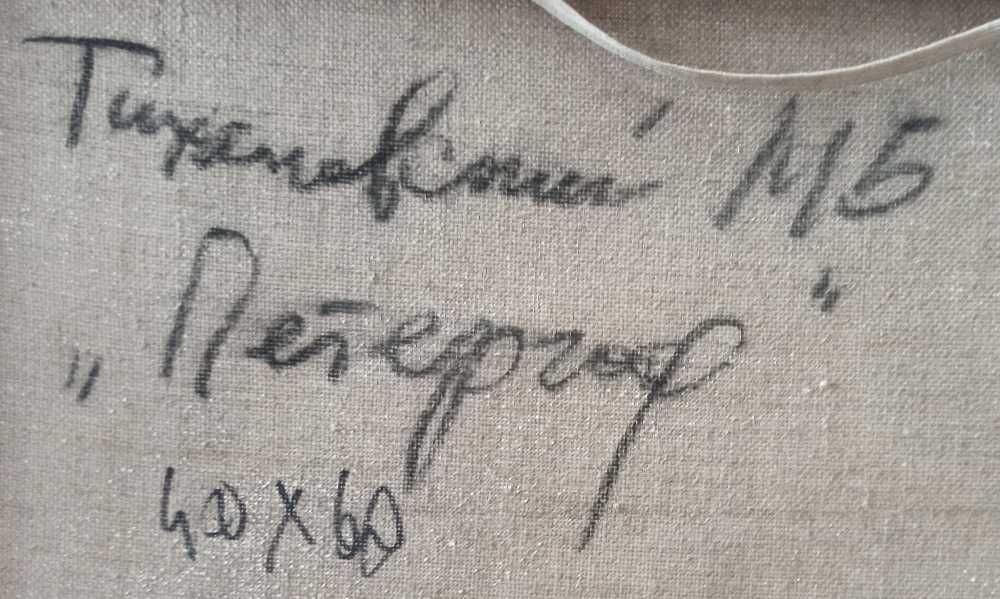 Тихановский МБ
„Петергоф"
40х60